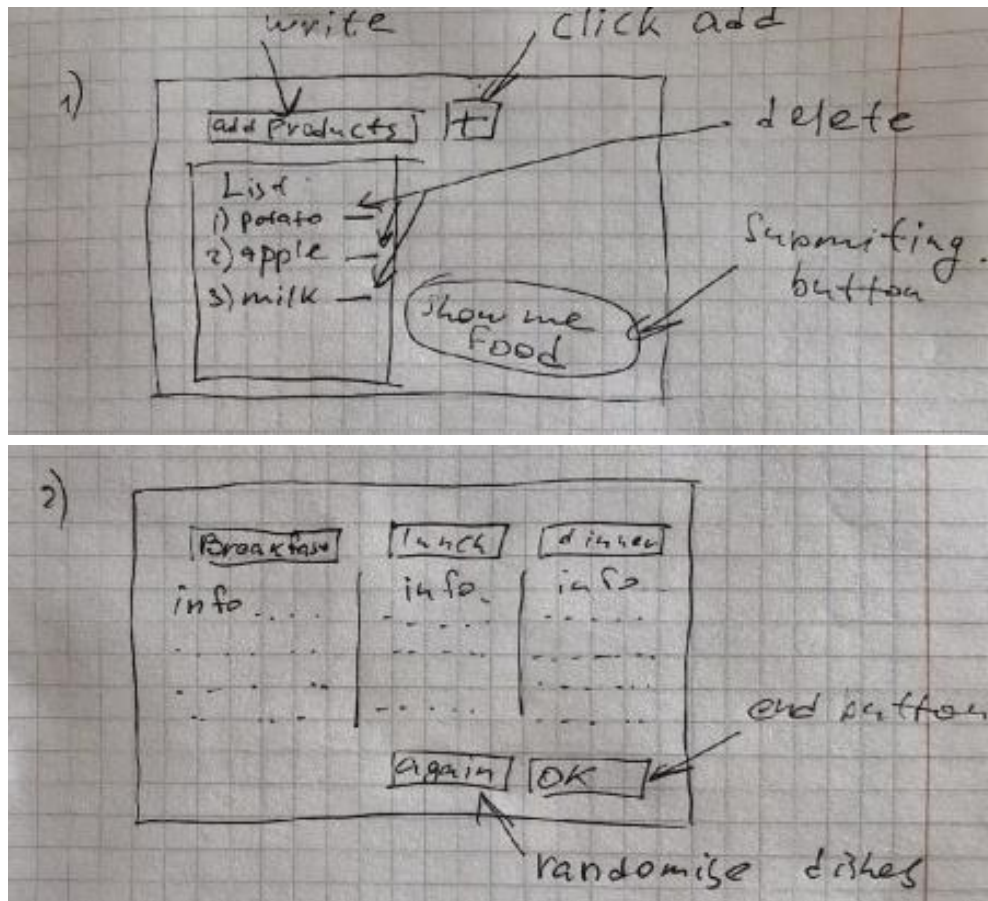 write
click add
1)
add products
+
delete
List
1) potato —
2) apple —
3) milk —
Supmiting
button
show me
food
2)
Breakfast
lunch
dinner
info....
info.
info...
end button
again
OK
randomise dishes